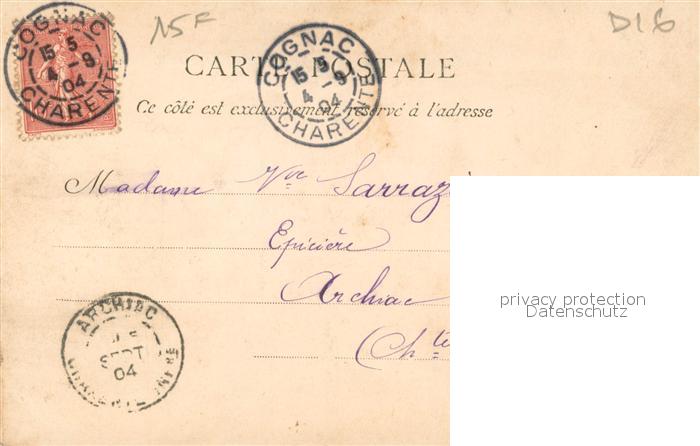 15F
D16
COGNAC
15 5
4 -9
04
CHARENTE
COGNAC
15 5
4 -9
04
CHARENTE
CARTE POSTALE
Ce côté est exclusivement réservé à l'adresse
Madame Vve Sarraz
Epicière
Archiac
(Chte
ARCHIAC
SEPT
04
privacy protection
Datenschutz